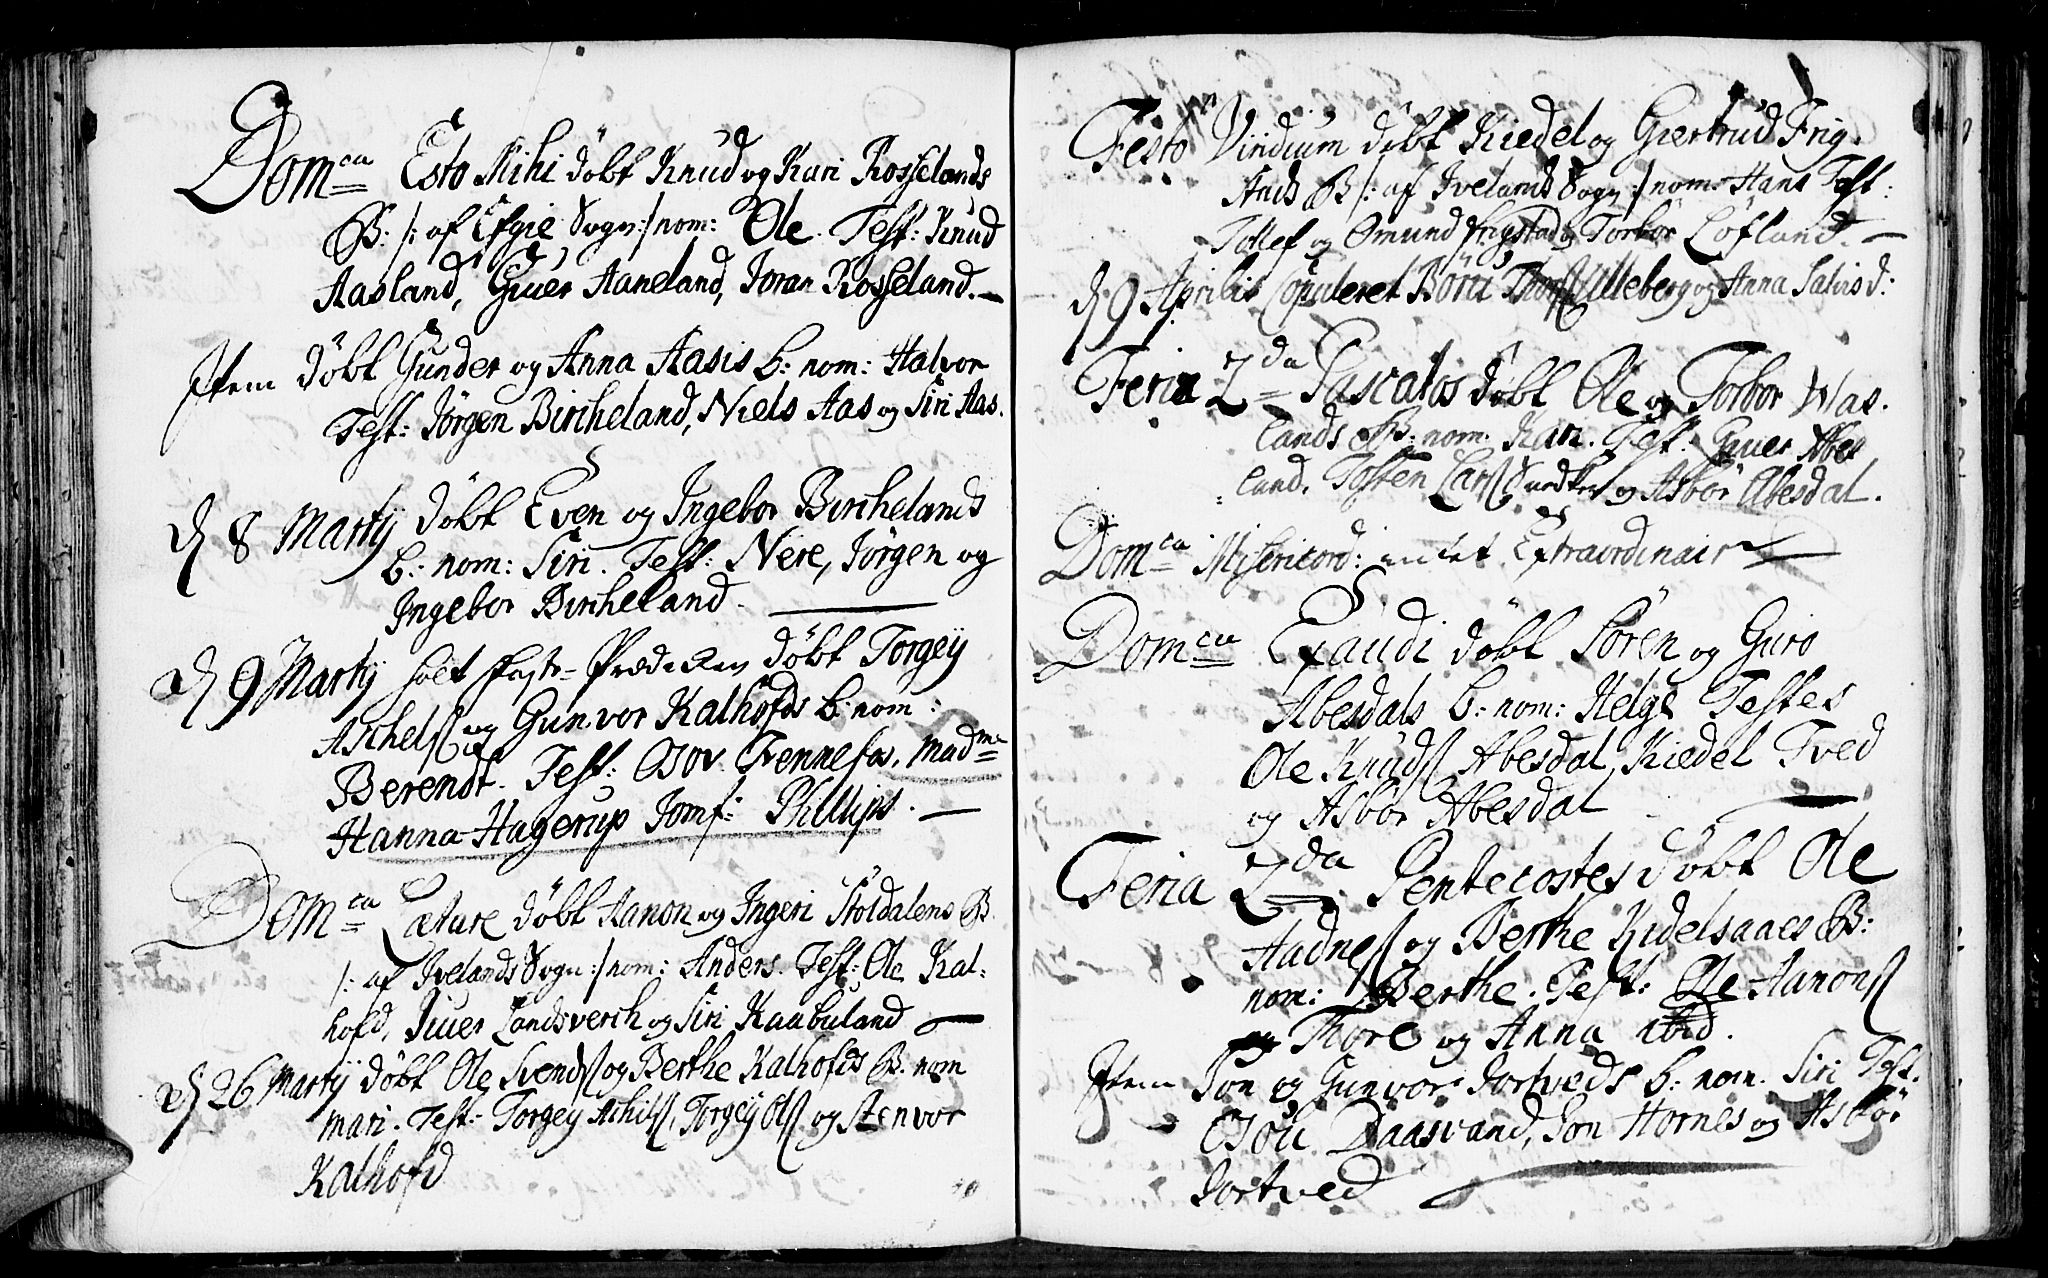 Dom^ca Esto Mihi döbt Knud og Kari Rosselands
B: /: af Efgie Sogn :/ nom: Ole. Test: Knud
Aasland, Giuer Aaneland, Joran Rosseland. —
Item döbt Gunder og Anna Aasis b: nom: Halvor
Test: Jörgen Bircheland, Niels Aas og Siri Aas.
d 8 Martÿ döbt Even og Ingebor Birchelands
b: nom: Siri. Test: Nere, Jörgen og
Ingebor Bircheland. —
d 9 Martÿ holt Faste-Prædiken döbt Torgeÿ
Aschelss og Gunvor Kalhofds b: nom:
Berendt. Test: Gov. Fennefos, Mad^me
Hanna Hagerup Jomf: Phillips. —
Dom^ca Lætare döbt Aanon og Ingeri Stoldalens B.
/: af Ivelands Sogn :/ nom: Anders. Test: Ole Kal-
hofd, Iuer Landsverch og Siri Kaabuland —
d 26 Martÿ döbt Ole Svends og Berthe Kalhofds B. nom
Mari. Test: Torgeÿ Achils, Torgeÿ Ols og Stenvor
Kalhofd
Festo Viridium döbt Kiedel og Giertrud Frig-
stads B /: af Ivelands Sogn :/ nom: Hans Test:
Tollef og Omund Frigstad og Torbor Lofland. —
d 9 Aprilis Copuleret Börü Thors Ulleberg og Anna Salvisd:
Feria 2^da Pascatos döbt Ole og Torbor Was-
lands B: nom. Kari. Test: Giuer Abes
land, Tosten Lars Snedker og Asbor Abesdal.
Dom^ca Misericord: intet Extraordinair
Dom^ca Exaudi döbt Sören og Guro
Abesdals b: nom: Helge Testes
Ole Knuds Abesdal, Kiedel Tved
og Asbor Abesdal —
Feria 2^da Pentecostes döbt Ole
Aadness og Berthe Kidelsaaes B:
nom: Berthe. Test: Ole Aanons
Thore og Anna ibid.
Item Jon og Gunvor Jortveds b: nom. Siri Test.
Göu Daasvand, Jon Hornes og Asbör
Jortved